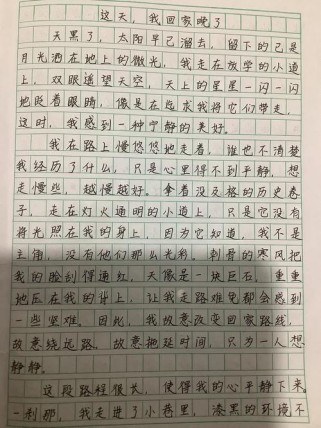 这天，我回家晚了
天黑了，太阳早已溜去，留下的已是
月光洒在地上的微光，我走在放学的小道
上，双眼遥望天空，天上的星星一闪一闪
地眨着眼睛，像是在恳求我将它们带走，
这时，我感到一种宁静的美好。
我在路上慢悠悠地走着，谁也不清楚
我经历了什么，只是心里得不到平静，想
走慢些，越慢越好。拿着没及格的历史卷
子，走在灯火通明的小道上，只是它没有
将光照在我的身上，因为它知道，我不是
主角，没有他们那么光彩。刺骨的寒风把
我的脸刮得通红，天像是一块巨石，重重
地压在我的身上，让我走路难免都会感到
一些坚难。因此，我故意改变回家路线，
故意绕远路，故意拖延时间，只为一人想
静静。
这段路程很长，使得我的心平静下来
一刹那，我走进了小巷里，漆黑的环境不